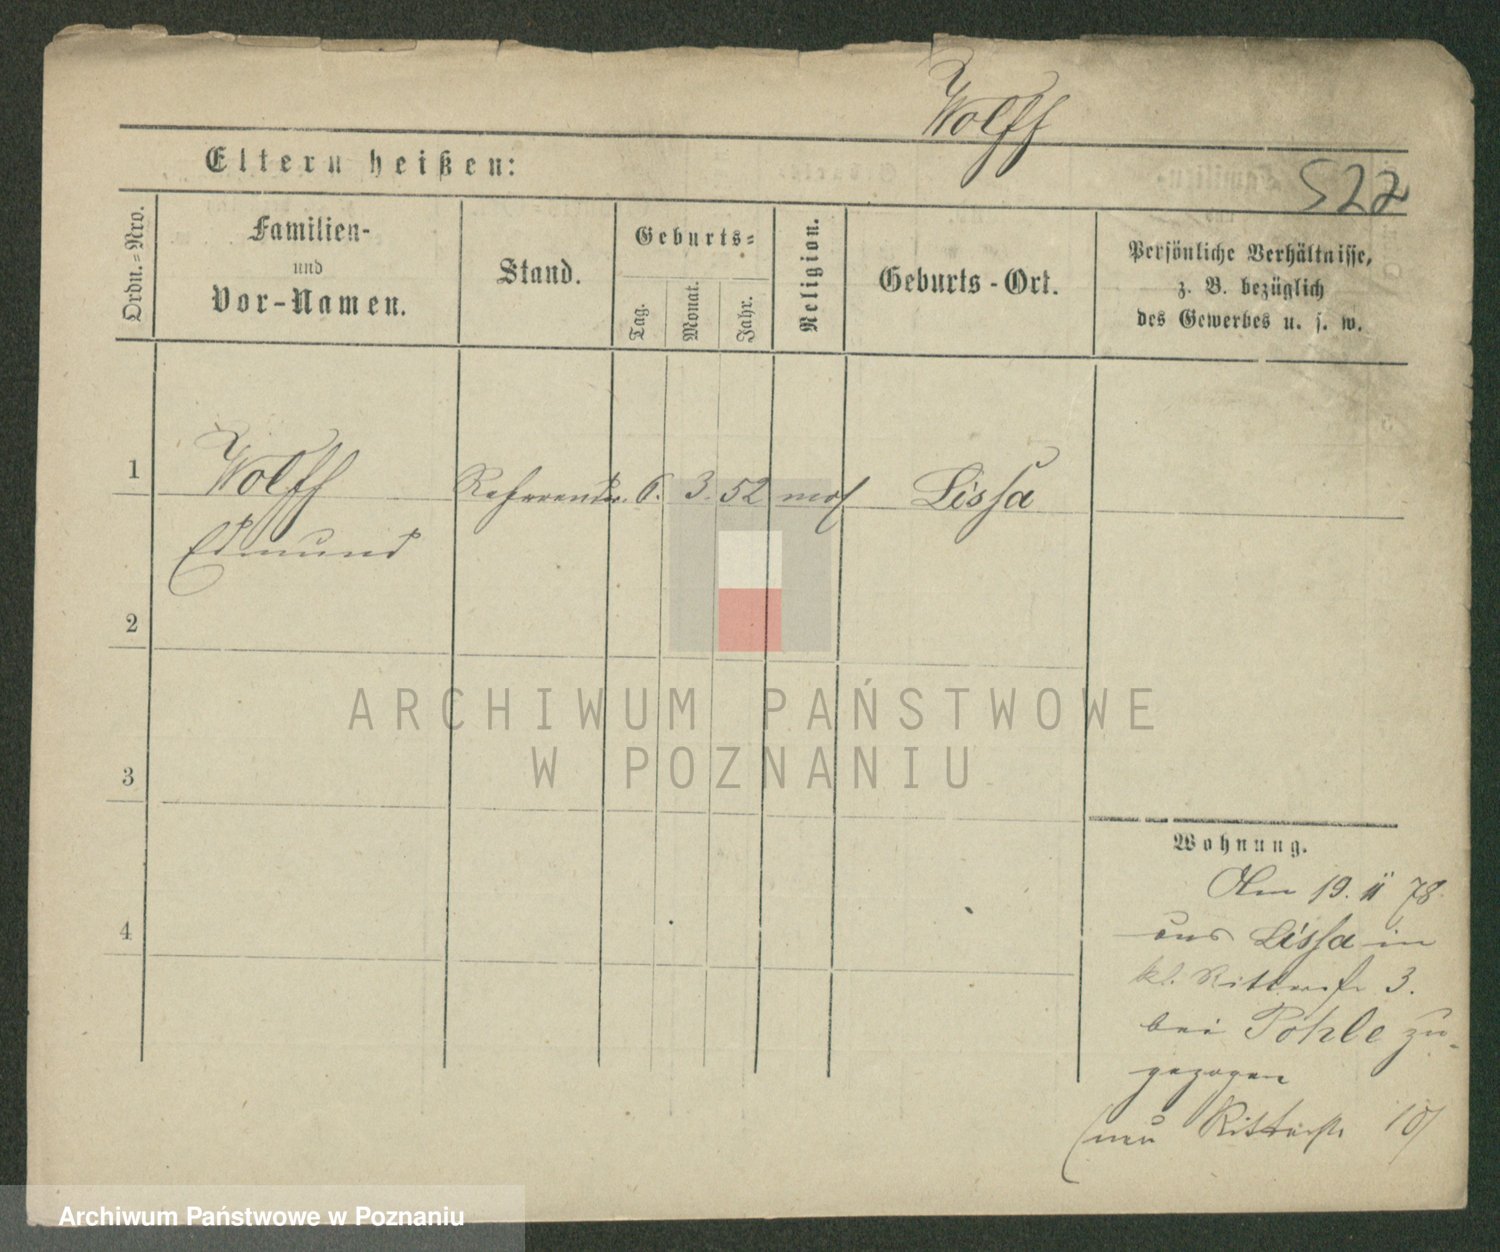 Wolff
Eltern heißen:
522
Ordn.-Nro.
Familien-
und
Vor-Namen.
Stand.
Geburts-
Tag.
Monat.
Jahr.
Religion.
Geburts-Ort.
Persönliche Verhältnisse,
z. B. bezüglich
des Gewerbes u. s. w.
1
Wolff
Referendar. 6. 3. 52 mos Lissa
Edmund
2
3
4
Wohnung.
Am 19. 11 78.
aus Lissa in
kl. Ritterstr 3.
bei Pohle zu-
gezogen
(neu Ritterstr 10)
ARCHIWUM PAŃSTWOWE
W POZNANIU
Archiwum Państwowe w Poznaniu